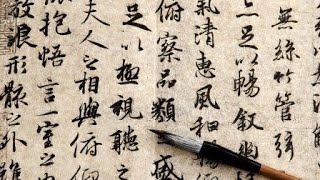 無絲竹管弦
足以暢叙幽
氣清惠風和暢
俯察品類之盛
足以極視聽之
夫人之相與俯仰
抱悟言一室之内
放浪形骸之外雖